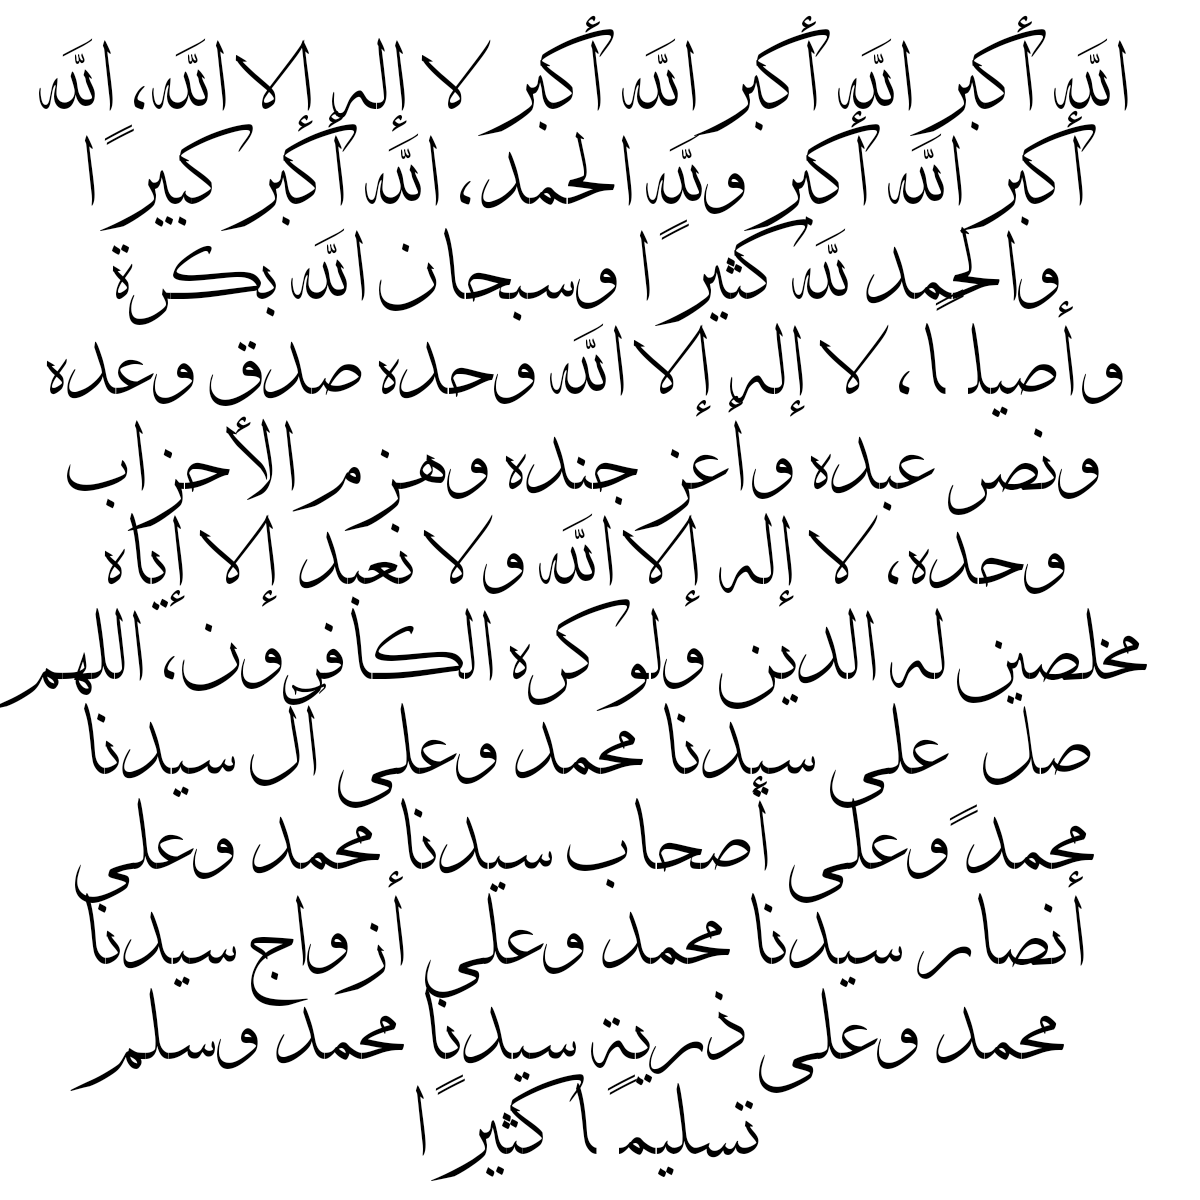 الله أكبر الله أكبر الله أكبر لا إله إلا الله، الله
أكبر الله أكبر ولله الحمد، الله أكبر كبيرًا
والحمد لله كثيرًا وسبحان الله بكرة
وأصيلًا، لا إله إلا الله وحده صدق وعده
ونصر عبده وأعز جنده وهزم الأحزاب
وحده، لا إله إلا الله ولا نعبد إلا إياه
مخلصين له الدين ولو كره الكافرون، اللهم
صل على سيدنا محمد وعلى آل سيدنا
محمد وعلى أصحاب سيدنا محمد وعلى
أنصار سيدنا محمد وعلى أزواج سيدنا
محمد وعلى ذرية سيدنا محمد وسلم
تسليمًا كثيرًا